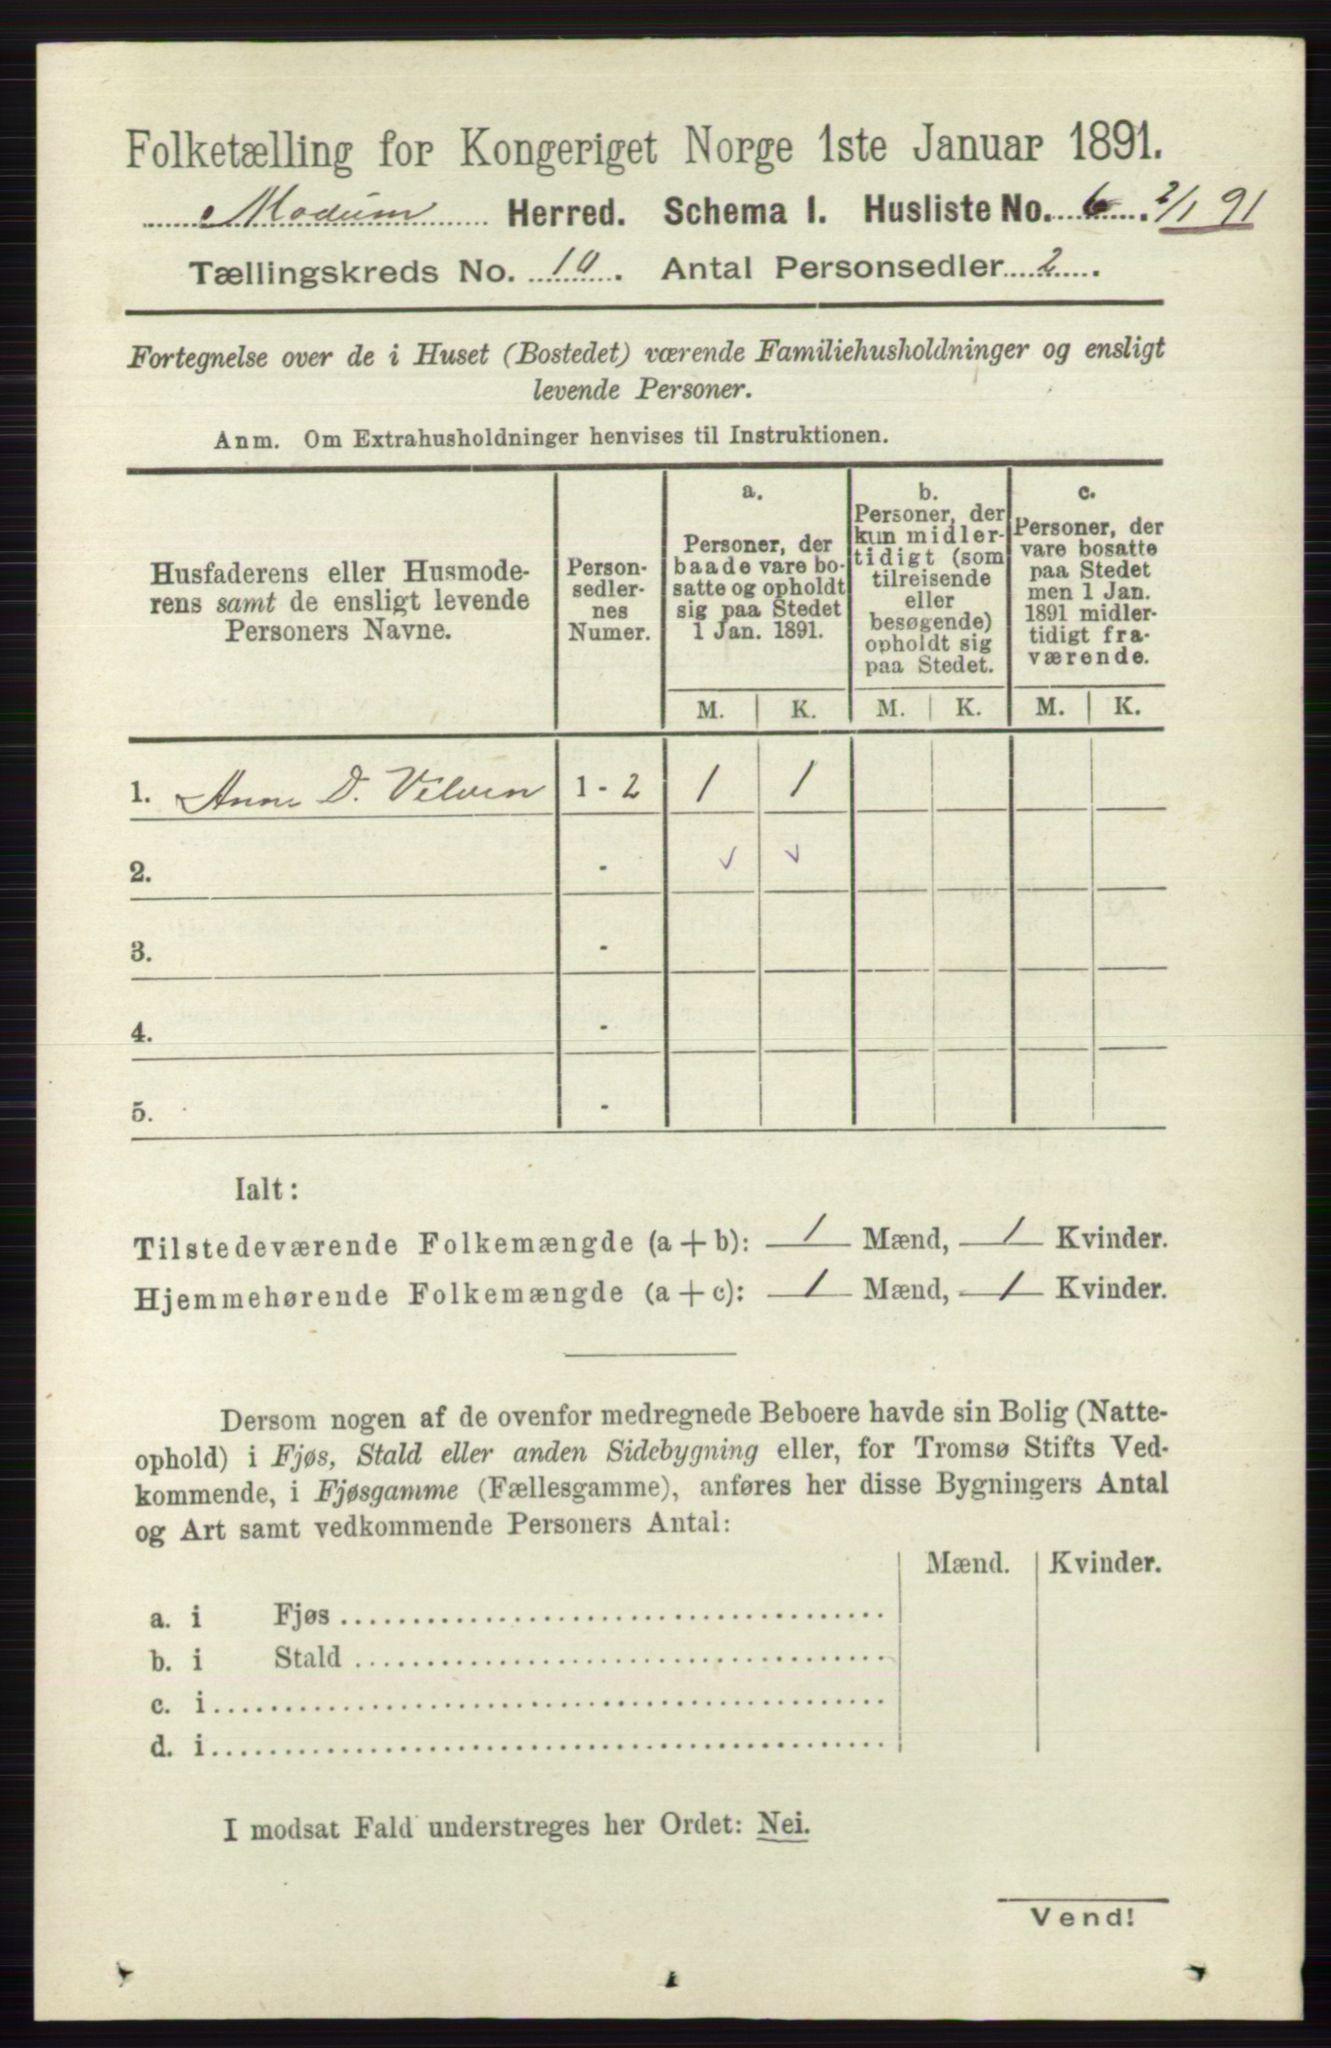 Folketælling for Kongeriget Norge 1ste Januar 1891.
Modum Herred. Schema 1. Husliste No. 6. 2/1 91
Tællingskreds No. 10. Antal Personsedler 2.
Fortegnelse over de i Huset (Bostedet) værende Familiehusholdninger og ensligt
levende Personer.
Anm. Om Extrahusholdninger henvises til Instruktionen.
Husfaderens eller Husmode-
rens samt de ensligt levende
Personers Navne.
Person-
sedler-
nes
Numer.
a.
Personer, der
baade vare bo-
satte og opholdt
sig paa Stedet
1 Jan. 1891.
b.
Personer, der
kun midler-
tidigt (som
tilreisende
eller
besøgende)
opholdt sig
paa Stedet.
c.
Personer, der
vare bosatte
paa Stedet
men 1 Jan.
1891 midler-
tidigt fra-
værende.
M. K. M. K. M. K.
1. Anne D. Velven 1 - 2 1 1
2. - ✓ ✓
3. -
4. -
5. -
Ialt:
Tilstedeværende Folkemængde (a + b): 1 Mænd, 1 Kvinder.
Hjemmehørende Folkemængde (a + c): 1 Mænd, 1 Kvinder.
Dersom nogen af de ovenfor medregnede Beboere havde sin Bolig (Natte-
ophold) i Fjøs, Stald eller anden Sidebygning eller, for Tromsø Stifts Ved-
kommende, i Fjøsgamme (Fællesgamme), anføres her disse Bygningers Antal
og Art samt vedkommende Personers Antal:
Mænd. Kvinder.
a. i Fjøs
b. i Stald
c. i
d. i
I modsat Fald understreges her Ordet: Nei.
Vend!